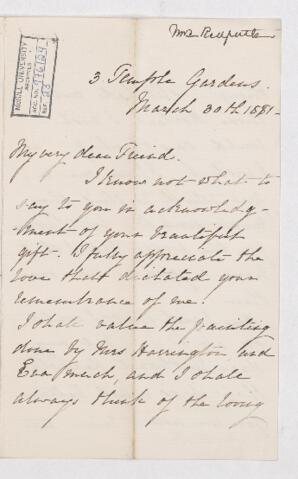 Mrs Redpath
McGILL UNIVERSITY
ACC. NO.
REF.
3 Temple Gardens.
March 30th 1881-
My very dear Friend.
I know not what to
say to you in acknowledg-
ment of your beautiful
gift. I fully appreciate the
love that dictated your
remembrance of me.
I shall value the painting
done by Mrs Harrington and
Eva much, and I shall
always think of the loving